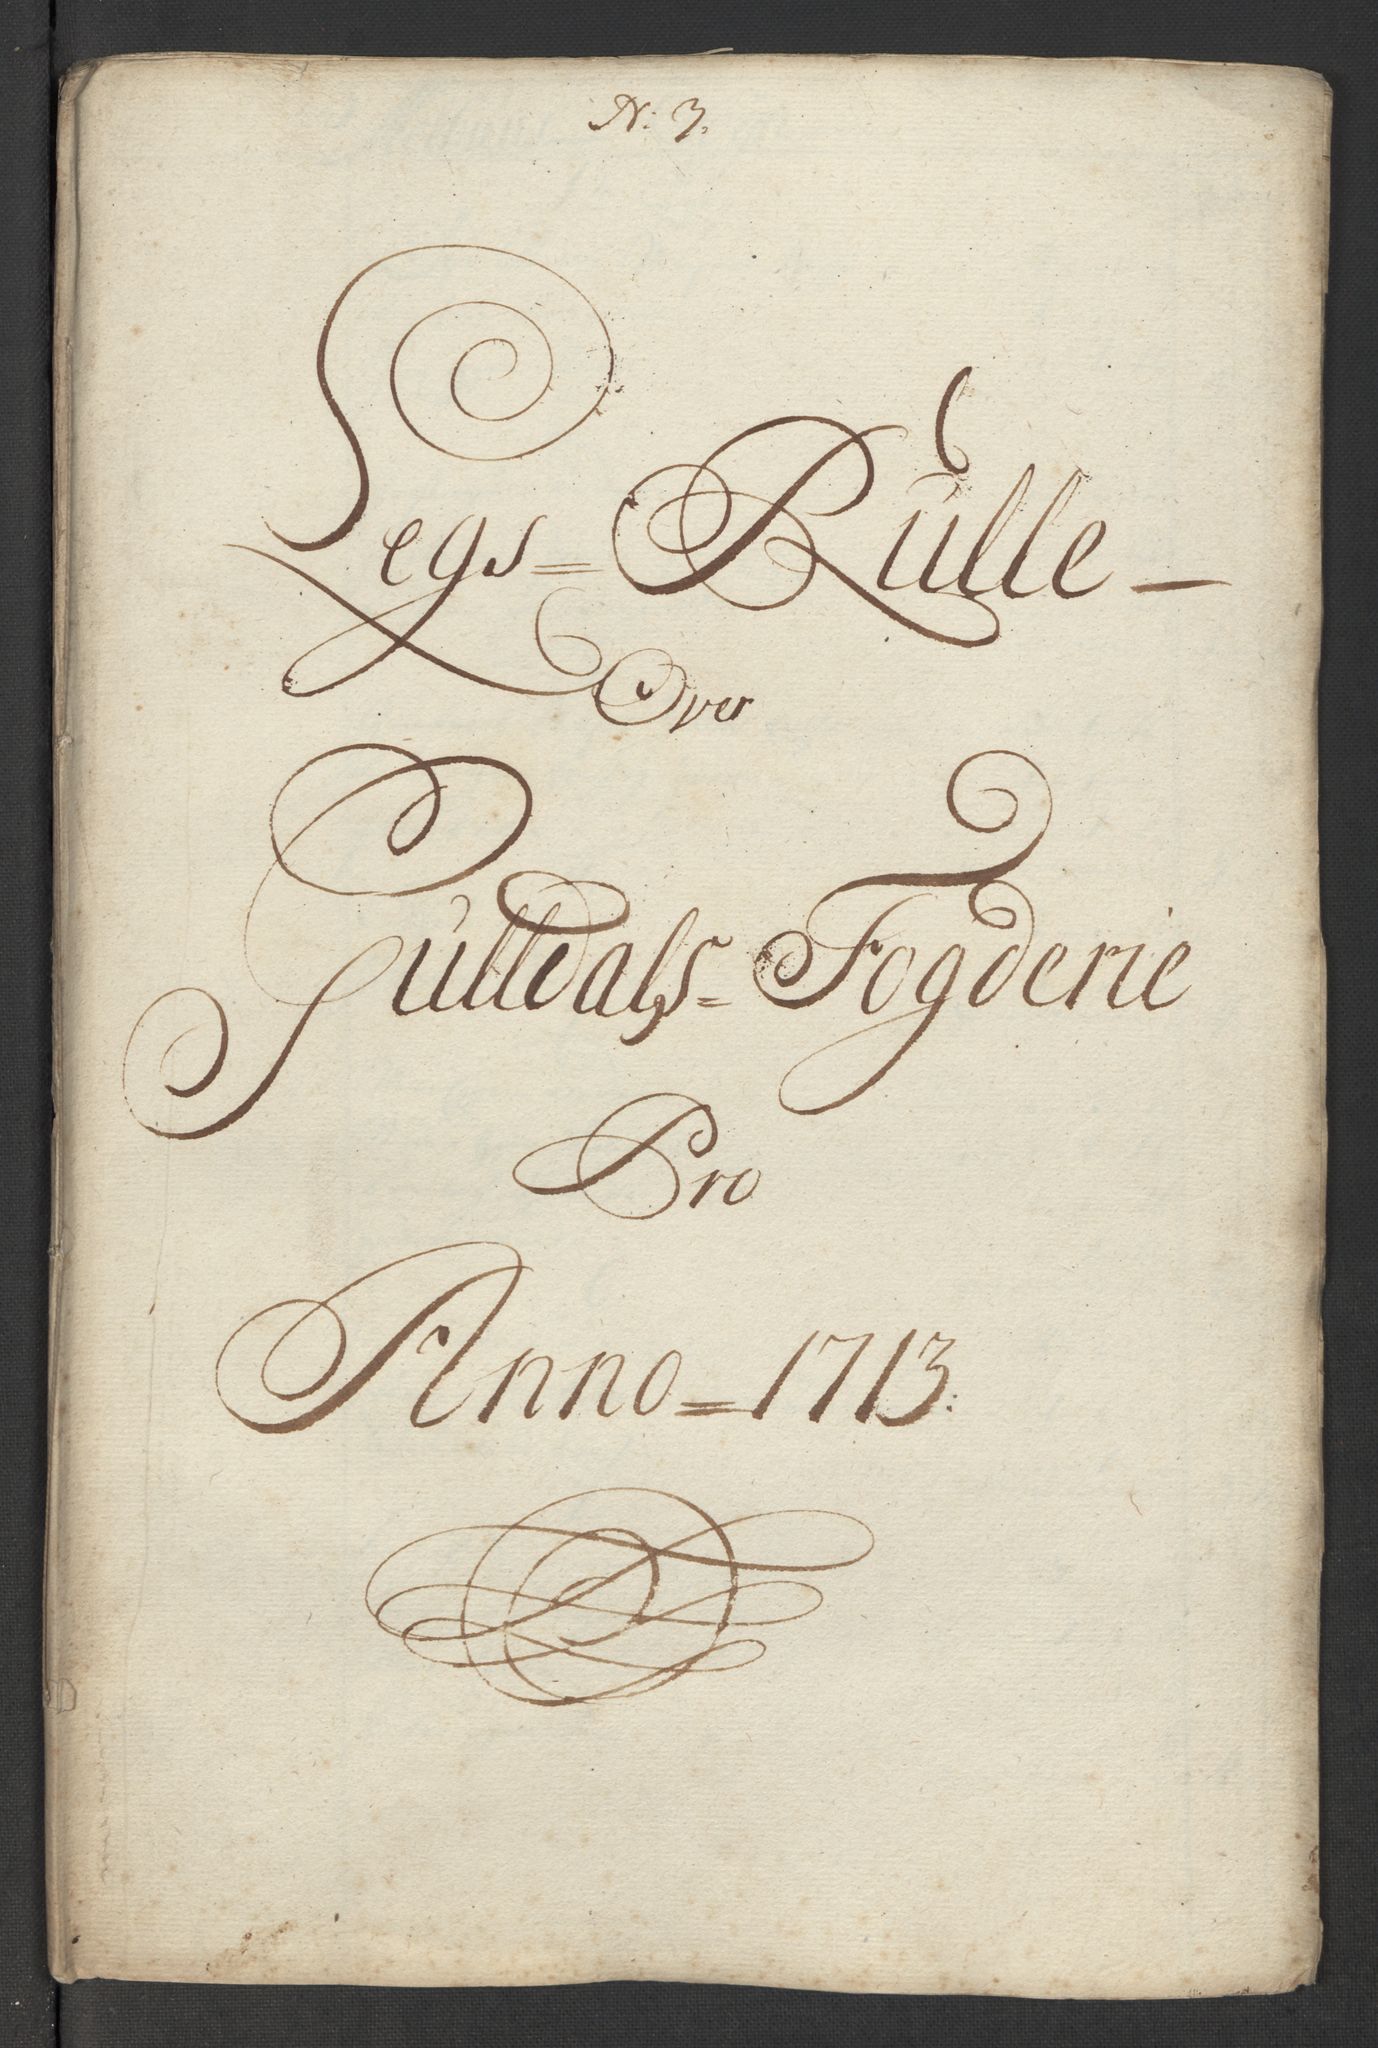 N: 3.
Legs= Rulle -
Over
Guldals= Fogderie
Pro
Anno= 1713: